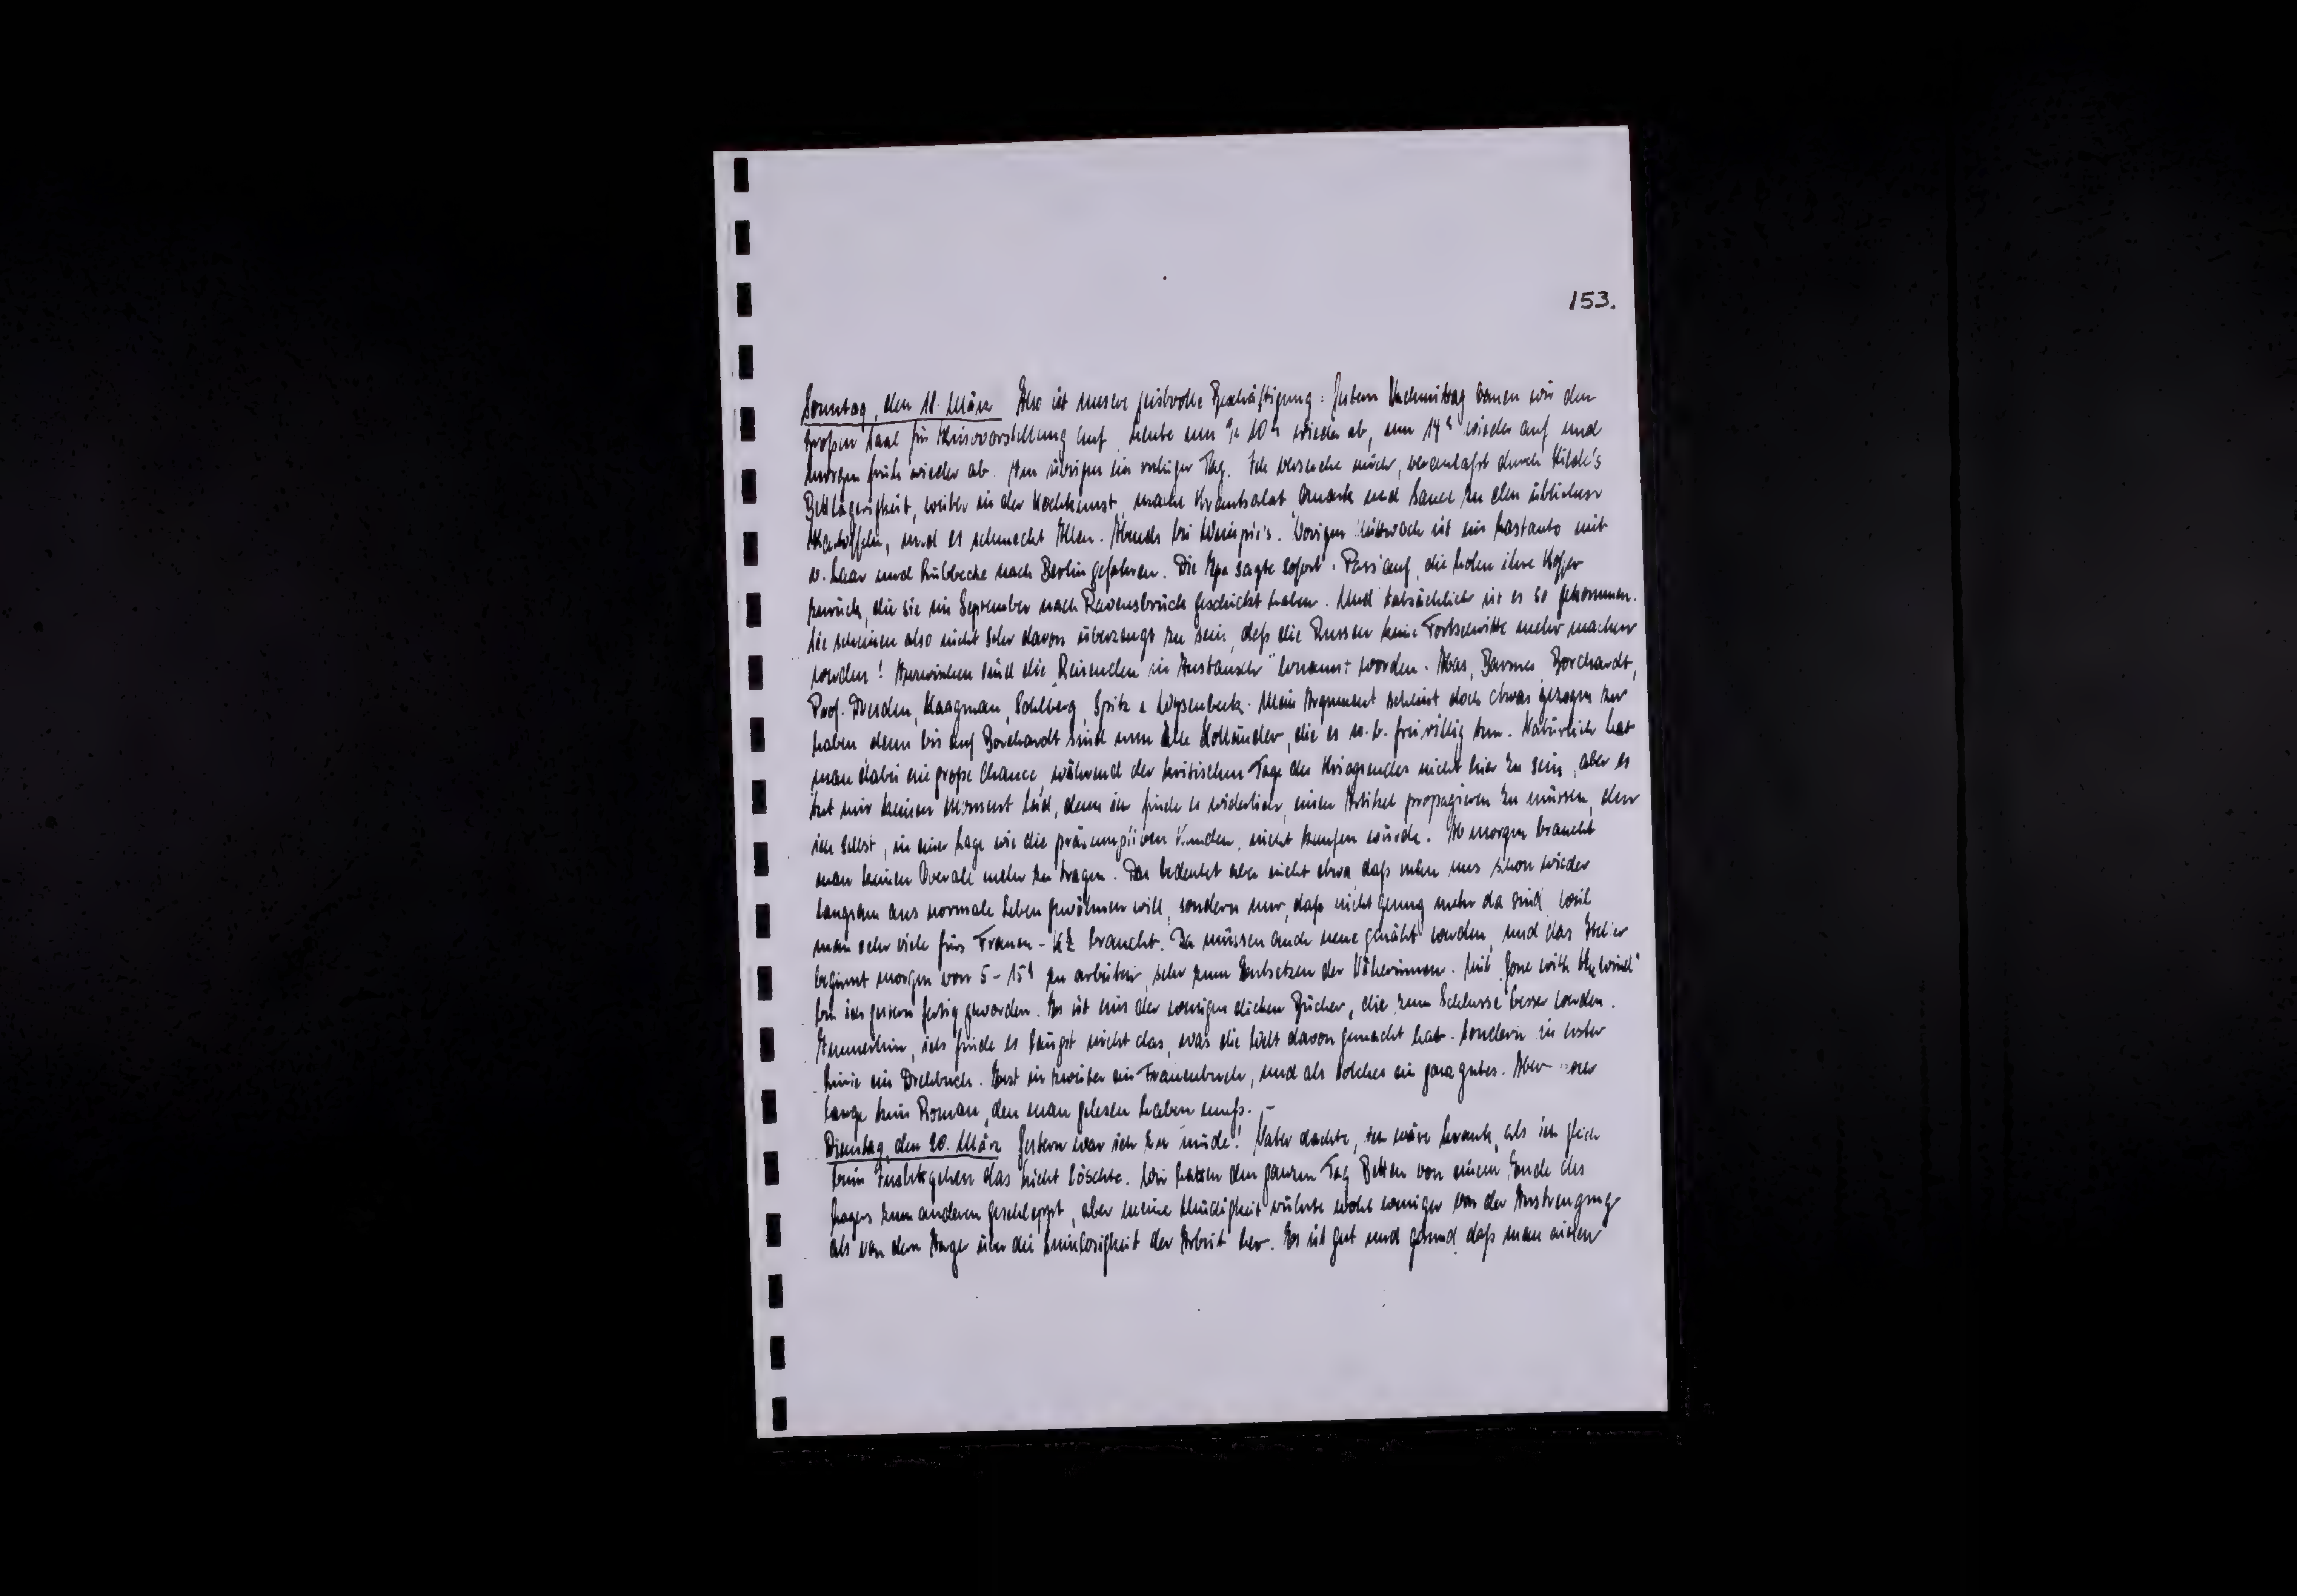 153.
Sonntag, den 18. März Also ist unsere geistvolle Beschäftigung: gestern Nachmittag bauen wir den
großen Saal für Kinovorstellung auf, heute um 20 h wieder ab, um 14 h wieder auf und
morgen früh wieder ab. Im übrigen ein ruhiger Tag. Ich versuche mich, veranlaßt durch Hilde's
Bettlägrigkeit, weiter in der Kochkunst, mache Krautsalat, Quark und Sauce zu den üblichen
Kartoffeln, und es schmeckt Allen. Abends bei. Vorigen Mittwoch ist ein Lastauto mit
v. Laar und Lübbecke nach Berlin gefahren. Die sagte sofort: Pass auf, die holen ihre Koffer
zurück, die sie im September nach Ravensbrück geschickt haben. Und tatsächlich ist es so gekommen.
Sie scheinen also nicht sehr davon überzeugt zu sein, daß die Russen keine Fortschritte mehr machen
werden! Inzwischen sind die „Reisenden in Austausch" ernannt worden. Abas, Barmes, Borchardt,
Prof. Dresden, Kaagman, Sohlberg, Spitz & Wijsenbeek. Mein Argument scheint doch etwas gezogen zu
haben, denn bis auf Borchardt sind nun alle Holländer, die es m. b. freiwillig tun. Natürlich hat
man dabei eine große Chance, während der kritischen Tage des Kriegsendes nicht hier zu sein, aber es
tut mir keinen Moment leid, denn ich finde es widerlich, einen Artikel propagieren zu müssen, den
ich selbst, in einer Lage wie die präsumptiven Kunden, nicht kaufen würde. Ab morgen braucht
man keinen Overall mehr zu tragen. Das bedeutet aber nicht etwa daß man uns schon wieder
langsam ans normale Leben gewöhnen will, sondern nur, daß nicht genug mehr da sind, weil
man sehr viele fürs Frauen-KZ braucht. Da müssen auch neue genäht werden, und das Atelier
beginnt morgen von 5-15 h zu arbeiten, sehr zum Entsetzen der Näherinnen. Mit „Gone with the wind"
bin ich gestern fertig geworden. Es ist eins der wenigen dicken Bücher, die zum Schlusse besser werden.
Immerhin, ich finde es längst nicht das, was die Welt davon gemacht hat. Sondern in erster
Linie ein Drehbuch. Erst in zweiter ein Frauenbuch, und als solches ein ganz gutes. Aber
lange kein Roman, den man gelesen haben muß. -
Dienstag, den 20. März Gestern war ich zu müde! Vater dachte, ich wäre krank, als ich gleich
beim Insbettgehen das Licht löschte. Wir hatten den ganzen Tag Betten von einem Ende des
Lagers zum anderen geschleppt, aber meine Müdigkeit rührte wohl weniger von der Anstrengung
als von dem Ärger über die Sinnlosigkeit der Arbeit her. Es ist gut und gesund daß man einen